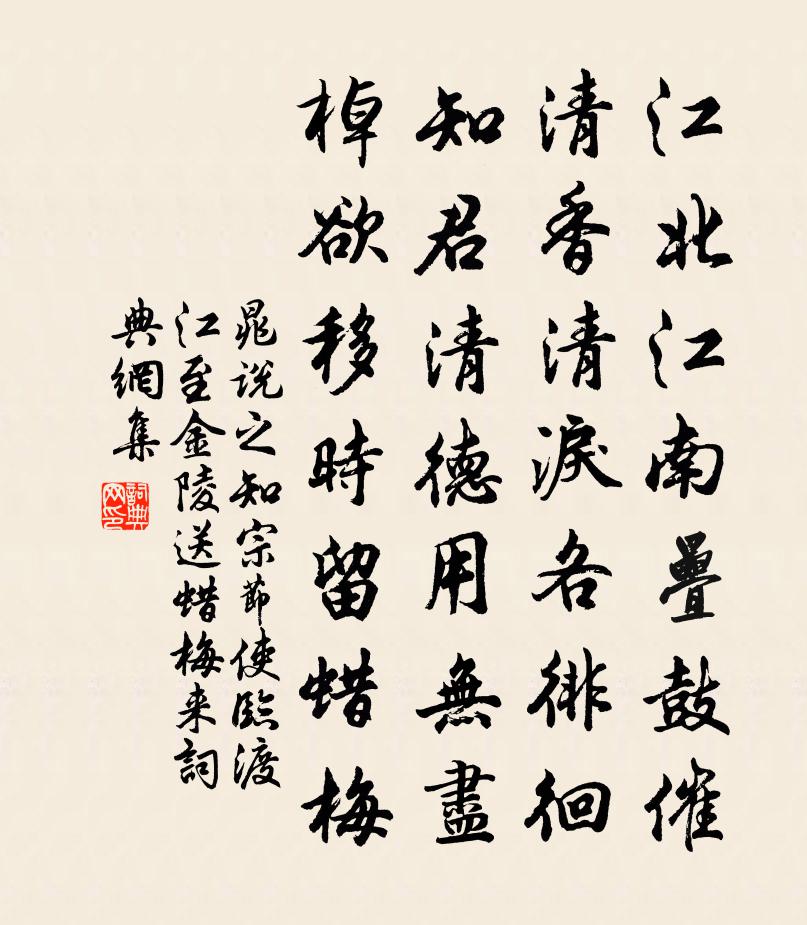 江北江南疊鼓催
清香清淚各徘徊
知君清德用無盡
棹欲移時留蜡梅
晁說之知宗節使臨渡
江至金陵送蜡梅来詞
典網集
詞典网印